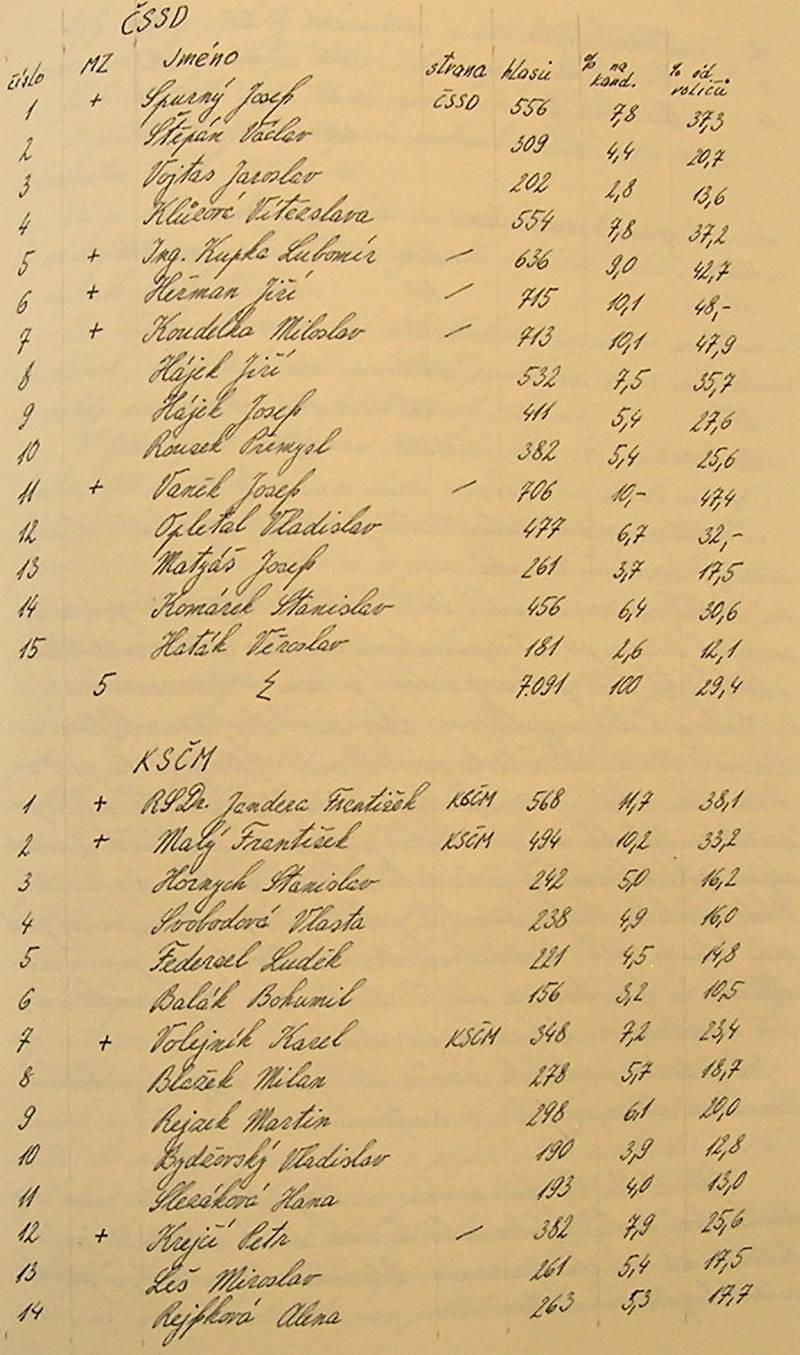 ČSSD
číslo MZ Jméno strana hlasů % na kand. % od voličů
1 + Spurný Josef ČSSD 556 7,8 37,3
2 Štěpán Václav 309 4,4 20,7
3 Vojtas Jaroslav 202 2,8 13,6
4 Klůzová Vítězslava 554 7,8 37,2
5 + Ing. Kupka Lubomír / 636 9,0 42,7
6 + Heřman Jiří / 715 10,1 48,-
7 + Koudelka Miloslav / 713 10,1 47,9
8 Hájek Jiří 532 7,5 35,7
9 Hájek Josef 411 5,4 27,6
10 Rousek Přemysl 382 5,4 25,6
11 + Vaněk Josef / 706 10,- 47,4
12 Opletal Vladislav 477 6,7 32,-
13 Matyáš Josef 261 3,7 17,5
14 Komárek Stanislav 456 6,4 30,6
15 Haták Věroslav 181 2,6 12,1
5 Σ 7.091 100 29,4
KSČM
1 + RSDr. Jandera František KSČM 568 11,7 38,1
2 + Malý František KSČM 494 10,2 33,2
3 Hornych Stanislav 242 5,0 16,2
4 Svobodová Vlasta 238 4,9 16,0
5 Federsel Luděk 221 4,5 14,8
6 Balák Bohumil 156 3,2 10,5
7 + Volejník Karel KSČM 348 7,2 23,4
8 Blažek Milan 278 5,7 18,7
9 Rejzek Martin 298 6,1 20,0
10 Bydžovský Vladislav 190 3,9 12,8
11 Slezáková Hana 193 4,0 13,0
12 + Krejčí Petr / 382 7,9 25,6
13 Leš Miroslav 261 5,4 17,5
14 Rejfková Alena 263 5,3 17,7